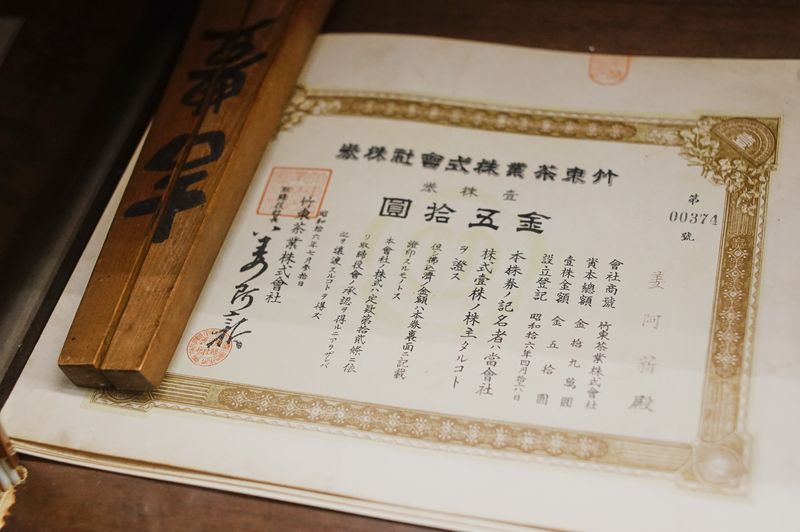 竹東茶業株式會社株券
壹株券
金五拾圓
第
00374
號
姜阿新殿
會社商號 竹東茶業株式會社
資本總額 金拾九萬圓
壹株金額 金五拾圓
設立登記 昭和拾六年四月拾六日
本株券ノ記名者ハ當會社
株式壹株ノ株主タルコト
ヲ證ス
但シ拂込濟ノ金額ハ本券裏面ニ記載
證印スルモノトス
本會社ノ株式ハ定款第拾貳條ニ依
リ取締役會ノ承認ヲ得ルニアラザレバ
ヲ讓渡スルコトヲ得ズ
昭和拾六年七月參拾日
竹東茶業株式會社
取締役社長
姜阿新